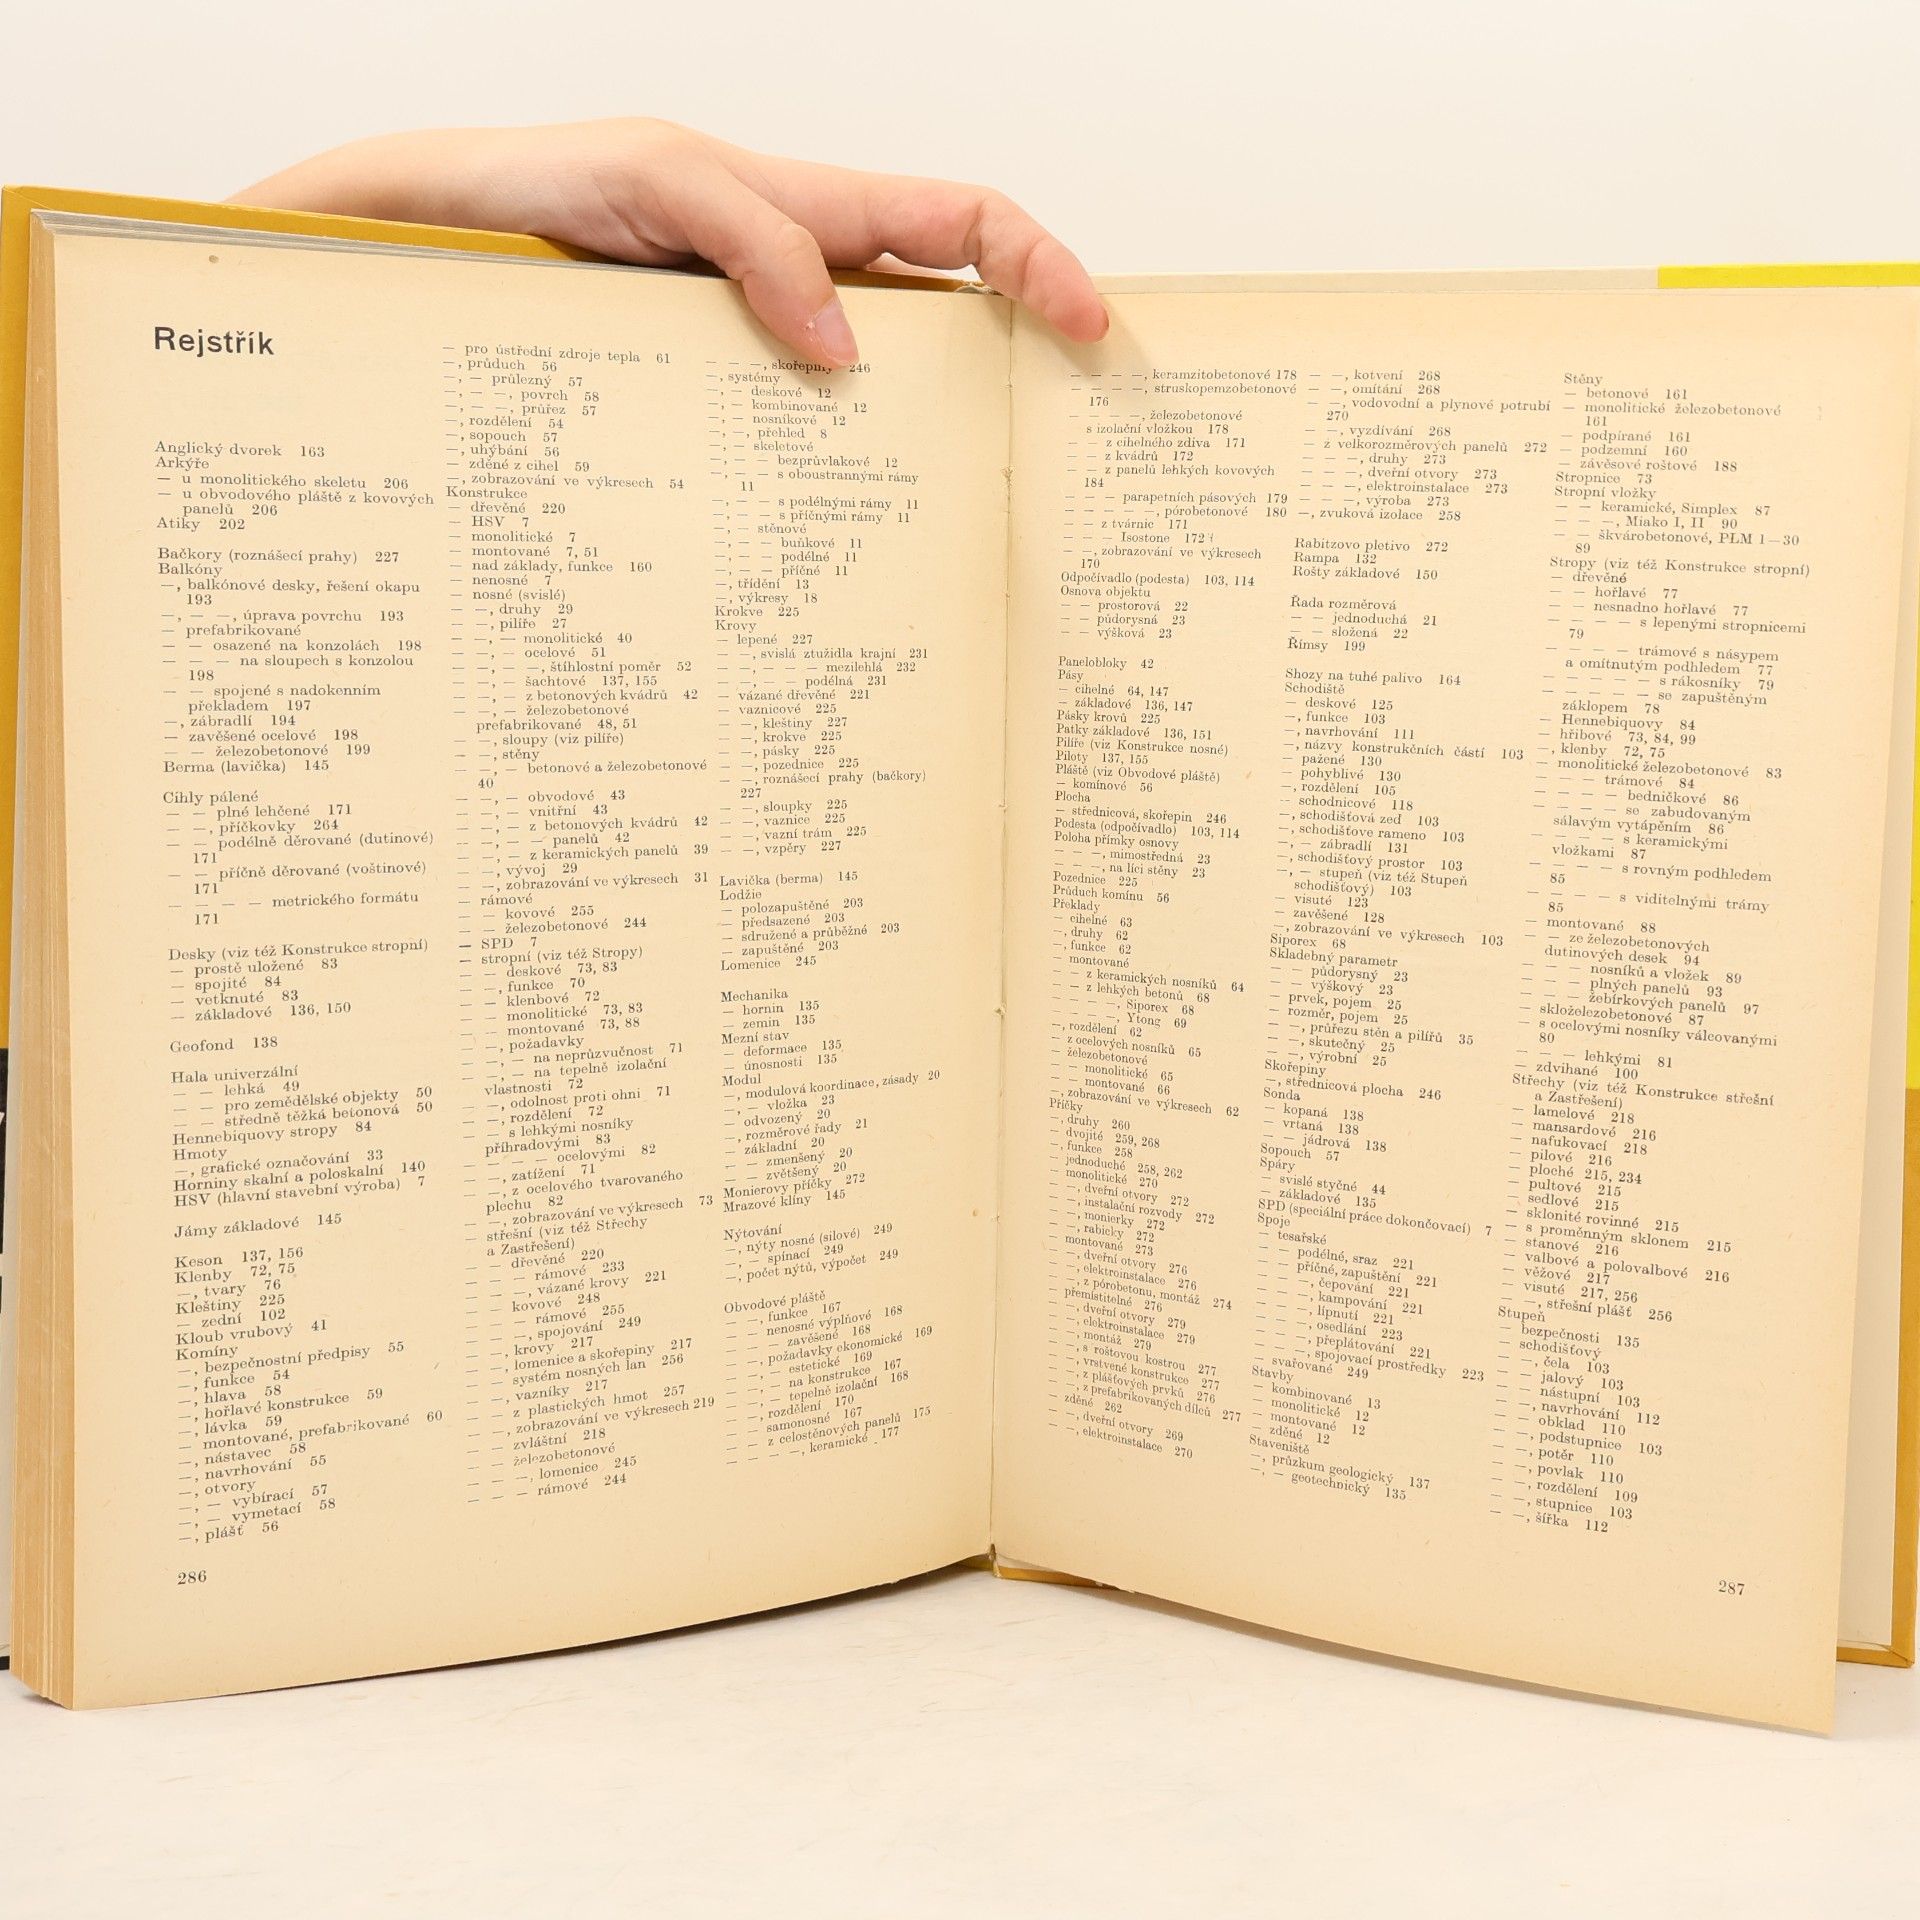 Rejstřík
Anglický dvorek 163
Arkýře
— u monolitického skeletu 206
— u obvodového pláště z kovových
panelů 206
Atiky 202
Bačkory (roznášecí prahy) 227
Balkóny
—, balkónové desky, řešení okapu
193
—, — —, úprava povrchu 193
— prefabrikované
— — osazené na konzolách 198
— — — na sloupech s konzolou
198
— — spojené s nadokenním
překladem 197
—, zábradlí 194
— zavěšené ocelové 198
— — železobetonové 199
Berma (lavička) 145
Cihly pálené
— — plné lehčené 171
— —, příčkovky 264
— — podélně děrované (dutinové)
171
— — příčně děrované (voštinové)
171
— — — — metrického formátu
171
Desky (viz též Konstrukce stropní)
— prostě uložené 83
— spojité 84
— vetknuté 83
— základové 136, 150
Geofond 138
Hala univerzální
— — lehká 49
— — pro zemědělské objekty 50
— — středně těžká betonová 50
Hennebiquovy stropy 84
Hmoty
—, grafické označování 33
Horniny skalní a poloskalní 140
HSV (hlavní stavební výroba) 7
Jámy základové 145
Keson 137, 156
Klenby 72, 75
—, tvary 76
Kleštiny 225
— zední 102
Kloub vrubový 41
Komíny
—, bezpečnostní předpisy 55
—, funkce 54
—, hlava 58
—, hořlavé konstrukce 59
—, lávka 59
— montované, prefabrikované 60
—, nástavec 58
—, navrhování 55
—, otvory
—, — vybírací 57
—, — vymetací 58
—, plášť 56
286
— pro ústřední zdroje tepla 61
—, průduch 56
—, — průlezný 57
—, — —, povrch 58
—, — —, průřez 57
—, rozdělení 54
—, sopouch 57
—, uhýbání 56
— zděné z cihel 59
—, zobrazování ve výkresech 54
Konstrukce
— dřevěné 220
— HSV 7
— monolitické 7
— montované 7, 51
— nad základy, funkce 160
— nenosné 7
— nosné (svislé)
— —, druhy 29
— —, pilíře 27
— —, — monolitické 40
— —, — ocelové 51
— —, — —, štíhlostní poměr 52
— —, — šachtové 137, 155
— —, — z betonových kvádrů 42
— —, — železobetonové
prefabrikované 48, 51
— —, sloupy (viz pilíře)
— —, stěny
— —, — betonové a železobetonové
40
— —, — obvodové 43
— —, — vnitřní 43
— —, — z betonových kvádrů 42
— —, — — panelů 42
— —, — z keramických panelů 39
— —, vývoj 29
— —, zobrazování ve výkresech 31
— rámové
— — kovové 255
— — železobetonové 244
— SPD 7
— stropní (viz též Stropy)
— — deskové 73, 83
— —, funkce 70
— — klenbové 72
— — monolitické 73, 83
— — montované 73, 88
— —, požadavky
— —, — na neprůzvučnost 71
— —, — na tepelně izolační
vlastnosti 72
— —, odolnost proti ohni 71
— —, rozdělení 72
— — s lehkými nosníky
příhradovými 83
— — — — ocelovými 82
— —, zatížení 71
— —, z ocelového tvarovaného
plechu 82
— —, zobrazování ve výkresech 73
— střešní (viz též Střechy
a Zastřešení)
— — dřevěné 220
— — — rámové 233
— — —, vázané krovy 221
— — kovové 248
— — — rámové 255
— — —, spojování 249
— —, krovy 217
— —, lomenice a skořepiny 217
— — systém nosných lan 256
— —, vazníky 217
— — z plastických hmot 257
— —, zobrazování ve výkresech 219
— — zvláštní 218
— — železobetonové
— — —, lomenice 245
— — — rámové 244
— — —, skořepiny 246
—, systémy
—, — deskové 12
—, — kombinované 12
—, — nosníkové 12
—, —, přehled 8
—, — skeletové
—, — — bezprůvlakové 12
—, — — s oboustrannými rámy
11
—, — — s podélnými rámy 11
—, — — s příčnými rámy 11
—, — stěnové
—, — — buňkové 11
—, — — podélné 11
—, — — příčné 11
—, třídění 13
—, výkresy 18
Krokve 225
Krovy
— lepené 227
— —, svislá ztužidla krajní 231
— —, — — — mezilehlá 232
— —, — — podélná 231
— vázané dřevěné 221
— vaznicové 225
— —, kleštiny 227
— —, krokve 225
— —, pásky 225
— —, pozednice 225
— —, roznášecí prahy (bačkory)
227
— —, sloupky 225
— —, vaznice 225
— —, vazní trám 225
— —, vzpěry 227
Lavička (berma) 145
Lodžie
— polozapuštěné 203
— předsazené 203
— sdružené a průběžné 203
— zapuštěné 203
Lomenice 245
Mechanika
— hornin 135
— zemin 135
Mezní stav
— deformace 135
— únosnosti 135
Modul
—, modulová koordinace, zásady 20
—, — vložka 23
— odvozený 20
—, rozměrové řady 21
— základní 20
— — zmenšený 20
— — zvětšený 20
Monierovy příčky 272
Mrazové klíny 145
Nýtování
—, nýty nosné (silové) 249
—, — spínací 249
—, počet nýtů, výpočet 249
Obvodové pláště
— —, funkce 167
— — nenosné výplňové 168
— — — zavěšené 168
— —, požadavky ekonomické 169
— —, — estetické 169
— —, — na konstrukce 167
— —, — tepelně izolační 168
— —, rozdělení 170
— — samonosné 167
— — z celostěnových panelů 175
— — — —, keramické 177
— — — —, keramzitobetonové 178
— — — —, struskopemzobetonové
176
— — — —, železobetonové
s izolační vložkou 178
— — z cihelného zdiva 171
— — z kvádrů 172
— — z panelů lehkých kovových
184
— — — parapetních pásových 179
— — — — —, pórobetonové 180
— — z tvárnic 171
— — — Isostone 172
— —, zobrazování ve výkresech
170
Odpočívadlo (podesta) 103, 114
Osnova objektu
— — prostorová 22
— — půdorysná 23
— — výšková 23
Panelobloky 42
Pásy
— cihelné 64, 147
— základové 136, 147
Pásky krovů 225
Patky základové 136, 151
Pilíře (viz Konstrukce nosné)
Piloty 137, 155
Pláště (viz Obvodové pláště)
— komínové 56
Plocha
— střednicová, skořepin 246
Podesta (odpočívadlo) 103, 114
Poloha přímky osnovy
— — —, mimostředná 23
— — —, na líci stěny 23
Pozednice 225
Průduch komínu 56
Překlady
— cihelné 63
—, druhy 62
—, funkce 62
— montované
— — z keramických nosníků 64
— — z lehkých betonů 68
— — — —, Siporex 68
— — — —, Ytong 69
—, rozdělení 62
— z ocelových nosníků 65
— železobetonové
— — monolitické 65
— — montované 66
—, zobrazování ve výkresech 62
Příčky
—, druhy 260
— dvojité 259, 268
—, funkce 258
— jednoduché 258, 262
— monolitické 270
— —, dveřní otvory 272
— —, instalační rozvody 272
— —, monierky 272
— —, rabicky 272
— montované 273
— —, dveřní otvory 276
— —, elektroinstalace 276
— —, z pórobetonu, montáž 274
— přemístitelné 276
— —, dveřní otvory 279
— —, elektroinstalace 279
— —, montáž 279
— —, s roštovou kostrou 277
— —, vrstvené konstrukce 277
— —, z plášťových prvků 276
— —, z prefabrikovaných dílců 277
— zděné 262
— —, dveřní otvory 269
— —, elektroinstalace 270
— —, kotvení 268
— —, omítání 268
— —, vodovodní a plynové potrubí
270
— —, vyzdívání 268
— z velkorozměrových panelů 272
— — —, druhy 273
— — —, dveřní otvory 273
— — —, elektroinstalace 273
— — —, výroba 273
—, zvuková izolace 258
Rabitzovo pletivo 272
Rampa 132
Rošty základové 150
Řada rozměrová
— — jednoduchá 21
— — složená 22
Římsy 199
Shozy na tuhé palivo 164
Schodiště
— deskové 125
—, funkce 103
—, navrhování 111
—, názvy konstrukčních částí 103
— pažené 130
— pohyblivé 130
—, rozdělení 105
— schodnicové 118
—, schodišťová zeď 103
—, schodišťové rameno 103
—, — zábradlí 131
—, schodišťový prostor 103
—, — stupeň (viz též Stupeň
schodišťový) 103
— visuté 123
— zavěšené 128
—, zobrazování ve výkresech 103
Siporex 68
Skladebný parametr
— — půdorysný 23
— — výškový 23
— prvek, pojem 25
— rozměr, pojem 25
— —, průřezu stěn a pilířů 35
— —, skutečný 25
— —, výrobní 25
Skořepiny
—, střednicová plocha 246
Sonda
— kopaná 138
— vrtaná 138
— — jádrová 138
Sopouch 57
Spáry
— svislé styčné 44
— základové 135
SPD (speciální práce dokončovací) 7
Spoje
— tesařské
— — podélné, sraz 221
— — příčné, zapuštění 221
— — —, čepování 221
— — —, kampování 221
— — —, lípnutí 221
— — —, osedlání 223
— — —, přeplátování 221
— — —, spojovací prostředky 223
— svařované 249
Stavby
— kombinované 13
— monolitické 12
— montované 12
— zděné 12
Staveniště
—, průzkum geologický 137
—, — geotechnický 135
Stěny
— betonové 161
— monolitické železobetonové
161
— podpírané 161
— podzemní 160
— závěsové roštové 188
Stropnice 73
Stropní vložky
— — keramické, Simplex 87
— — —, Miako I, II 90
— — škvárobetonové, PLM 1—30
89
Stropy (viz též Konstrukce stropní)
— dřevěné
— — hořlavé 77
— — nesnadno hořlavé 77
— — — — s lepenými stropnicemi
79
— — — trámové s násypem
a omítnutým podhledem 77
— — — — — s rákosníky 79
— — — — — se zapuštěným
záklopem 78
— Hennebiquovy 84
— hřibové 73, 84, 99
—, klenby 72, 75
— monolitické železobetonové 83
— — — trámové 84
— — — — bedničkové 86
— — — — se zabudovaným
sálavým vytápěním 86
— — — — s keramickými
vložkami 87
— — — — s rovným podhledem
85
— — — — s viditelnými trámy
85
— montované 88
— — ze železobetonových
dutinových desek 94
— — — nosníků a vložek 89
— — — plných panelů 93
— — — žebírkových panelů 97
— skloželezobetonové 87
— s ocelovými nosníky válcovanými
80
— — — lehkými 81
— zdvihané 100
Střechy (viz též Konstrukce střešní
a Zastřešení)
— lamelové 218
— mansardové 216
— nafukovací 218
— pilové 216
— ploché 215, 234
— pultové 215
— sedlové 215
— sklonité rovinné 215
— s proměnným sklonem 215
— stanové 216
— valbové a polovalbové 216
— věžové 217
— visuté 217, 256
— —, střešní plášť 256
Stupeň
— bezpečnosti 135
— schodišťový
— —, čela 103
— — jalový 103
— — nástupní 103
— —, navrhování 112
— — obklad 110
— —, podstupnice 103
— —, potěr 110
— —, povlak 110
— —, rozdělení 109
— —, stupnice 103
— —, šířka 112
287